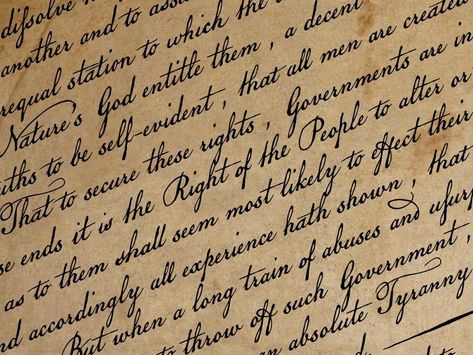 diſsolve
another and to assu
requal station to which the
Nature's God entitle them , a decent
uths to be self-evident , that all men are created
That to secure these rights , Governments are in
se ends it is the Right of the People to alter or
as to them shall seem most likely to effect their
nd accordingly all experience hath shown , that
But when a long train of abuses and usurp
to throw off such Government ,
an absolute Tyranny